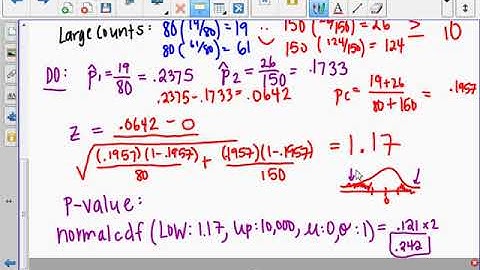 Large Counts: 80(19/80) = 19 150(26/150) = 26 ≥ 10
80(61/80) = 61 150(124/150) = 124
DO: p̂₁ = 19/80 = .2375 p̂₂ = 26/150 = .1733 pc = 19+26/80+150 = .1957
.2375-.1733=.0642
z = .0642 - 0 / √((.1957)(1-.1957)/80 + (.1957)(1-.1957)/150) = 1.17
0
P-value:
normalcdf (Low: 1.17, Up: 10,000, μ:0, σ:1) = .121 × 2
.242